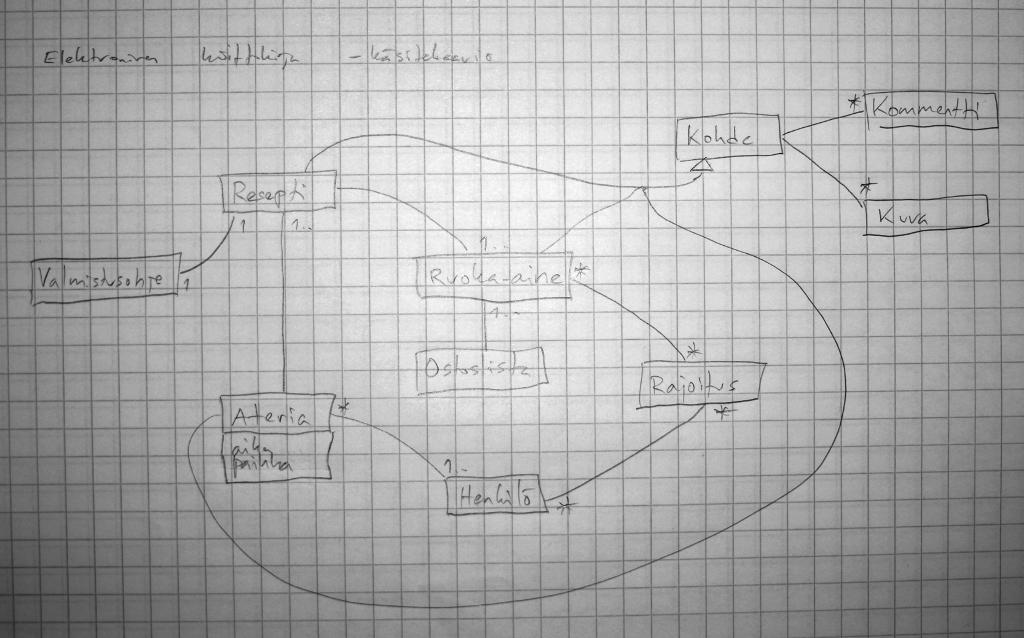 Elektroninen keittokirja - käsitekaavio
Kohde
* Kommentti
* Kuva
Resepti
1 1..
Valmistusohje 1
1..
Ruoka-aine *
1..
Ostoslista
*
Rajoitus
*
Ateria *
aika
paikka
1..
Henkilö *